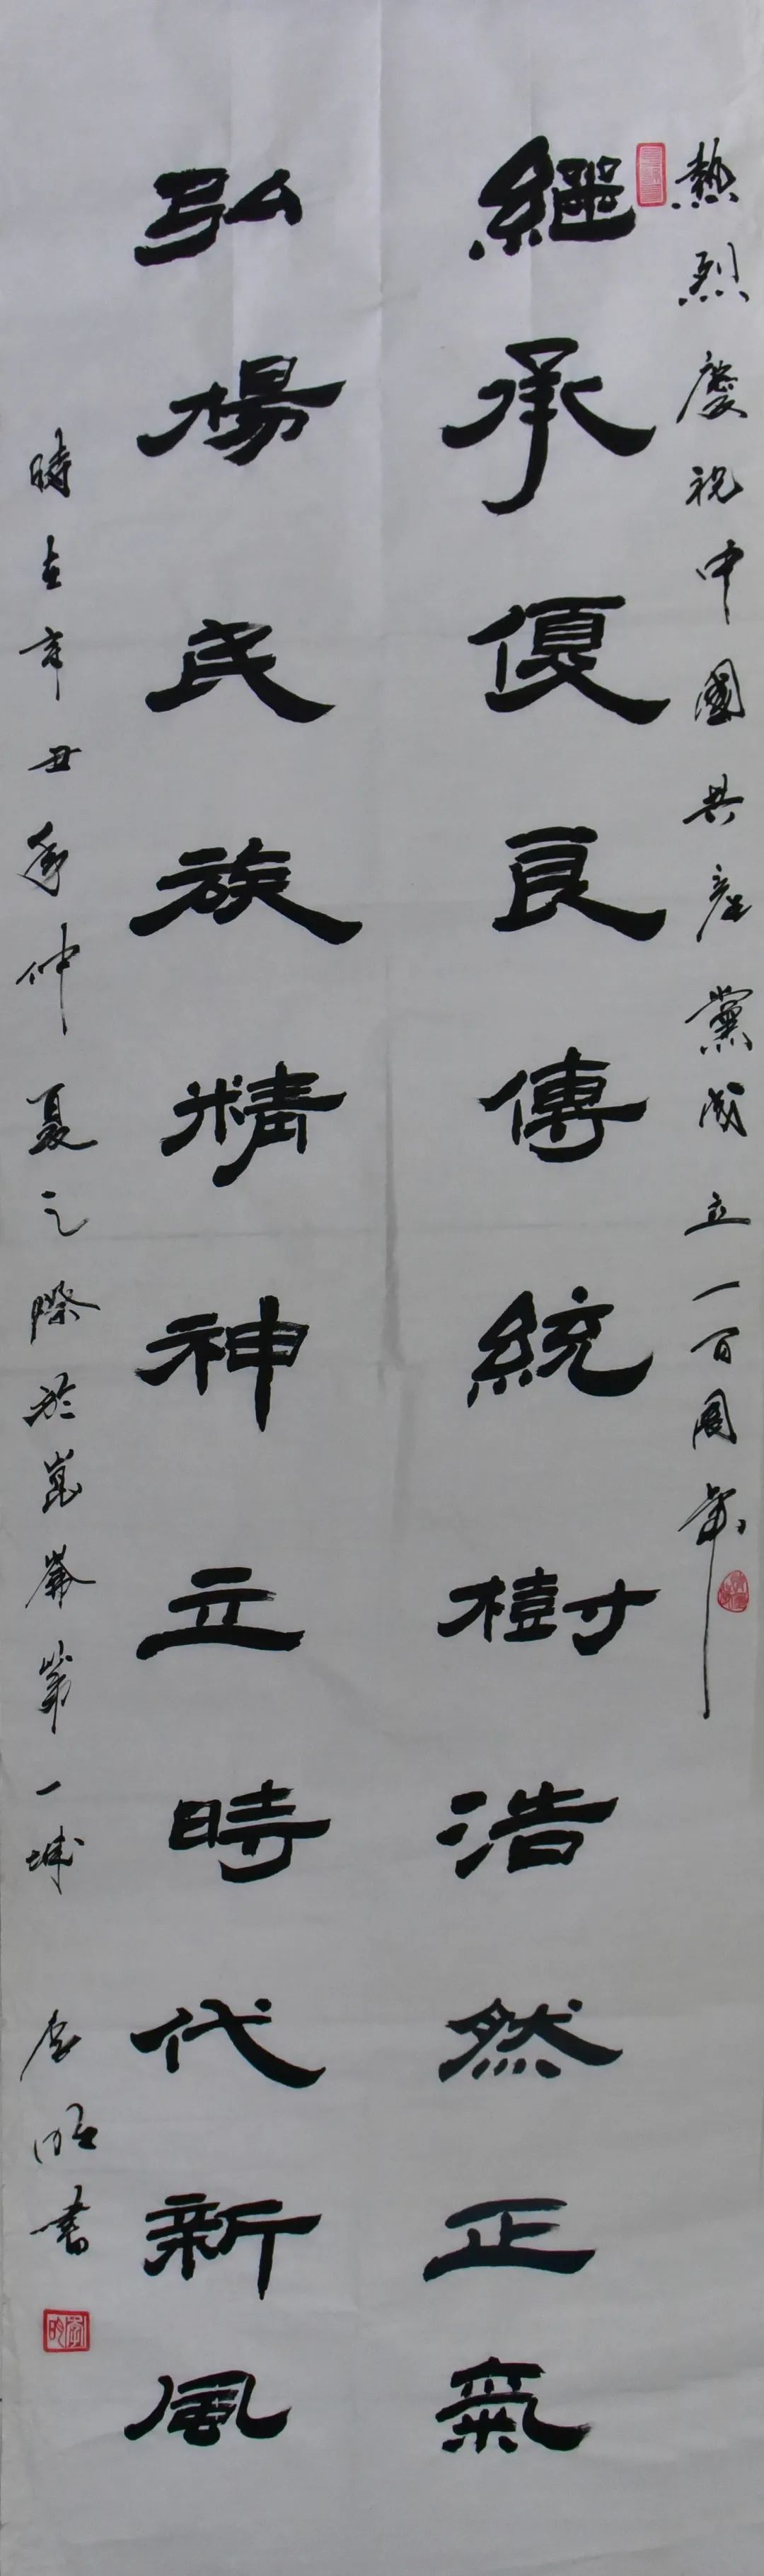 熱烈慶祝中國共產黨成立一百周年
繼承優良傳統樹浩然正氣
弘楊民族精神立時代新風
時在辛丑年仲夏之際於崑崙第一城
李明書